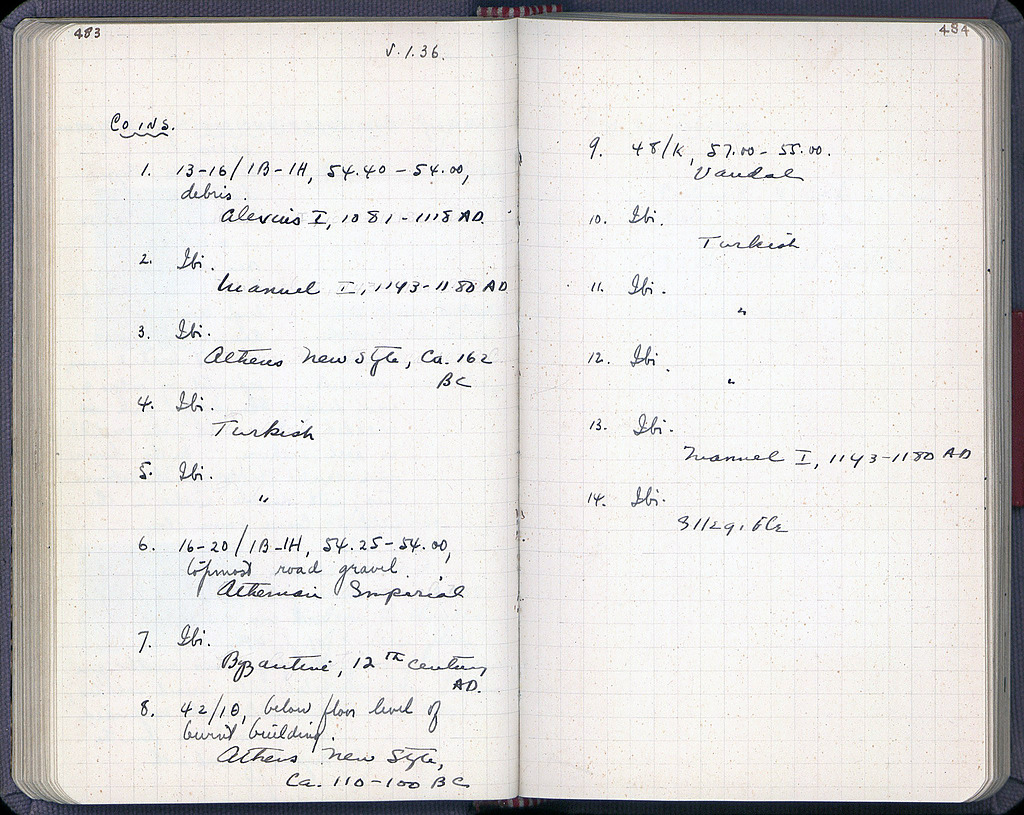 483
5.1.36.
Coins.
1. 13-16/1B-1H, 54.40-54.00,
debris.
Alexius I, 1081-1118 AD.
2. Ibi.
Manuel I, 1143-1180 AD
3. Ibi.
Athens New Style, Ca. 162
BC
4. Ibi.
Turkish
5. Ibi.
"
6. 16-20/1B-1H, 54.25-54.00,
topmost road gravel.
Athenian Imperial
7. Ibi.
Byzantine, 12th century
AD.
8. 42/10, below floor level of
burnt building.
Athens New Style,
Ca. 110-100 BC
484
9. 48/K, 57.00-55.00.
Vandal
10. Ibi.
Turkish
11. Ibi.
"
12. Ibi.
"
13. Ibi.
Manuel I, 1143-1180 AD
14. Ibi.
Illegible